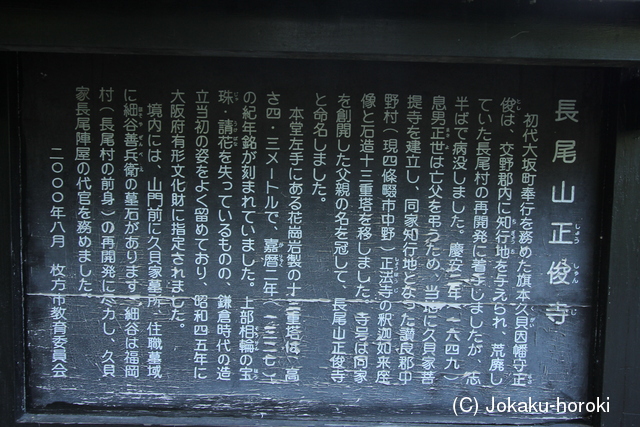 長尾山正俊寺
しょうしゅんじ
初代大坂町奉行を務めた旗本久貝因幡守正
俊は、交野郡内に知行地を与えられ、荒廃し
ていた長尾村の再開発に着手しましたが、志
半ばで病没しました。慶安二年(一六四九)
息男正世は亡父を弔うため、当地に久貝家菩
提寺を建立し、同家知行地となった讃良郡中
野村(現四條畷市中野)正法寺の釈迦如来座
像と石造十三重塔を移しました。寺号は同家
を創開した父親の名を冠して、長尾山正俊寺
と命名しました。
本堂左手にある花崗岩製の十三重塔は、高
さ四・三メートルで、嘉暦二年(一三二七)
の紀年銘が刻まれていました。上部相輪の宝
珠・請花を失っているものの、鎌倉時代の造
立当初の姿をよく留めており、昭和四五年に
大阪府有形文化財に指定されました。
境内には、山門前に久貝家墓所、住職墓域
に細谷善兵衛の墓石があります。細谷は福岡
村(長尾村の前身)の再開発に尽力し、久貝
家長尾陣屋の代官を務めました。
二〇〇〇年八月 枚方市教育委員会
(C) Jokaku-horoki